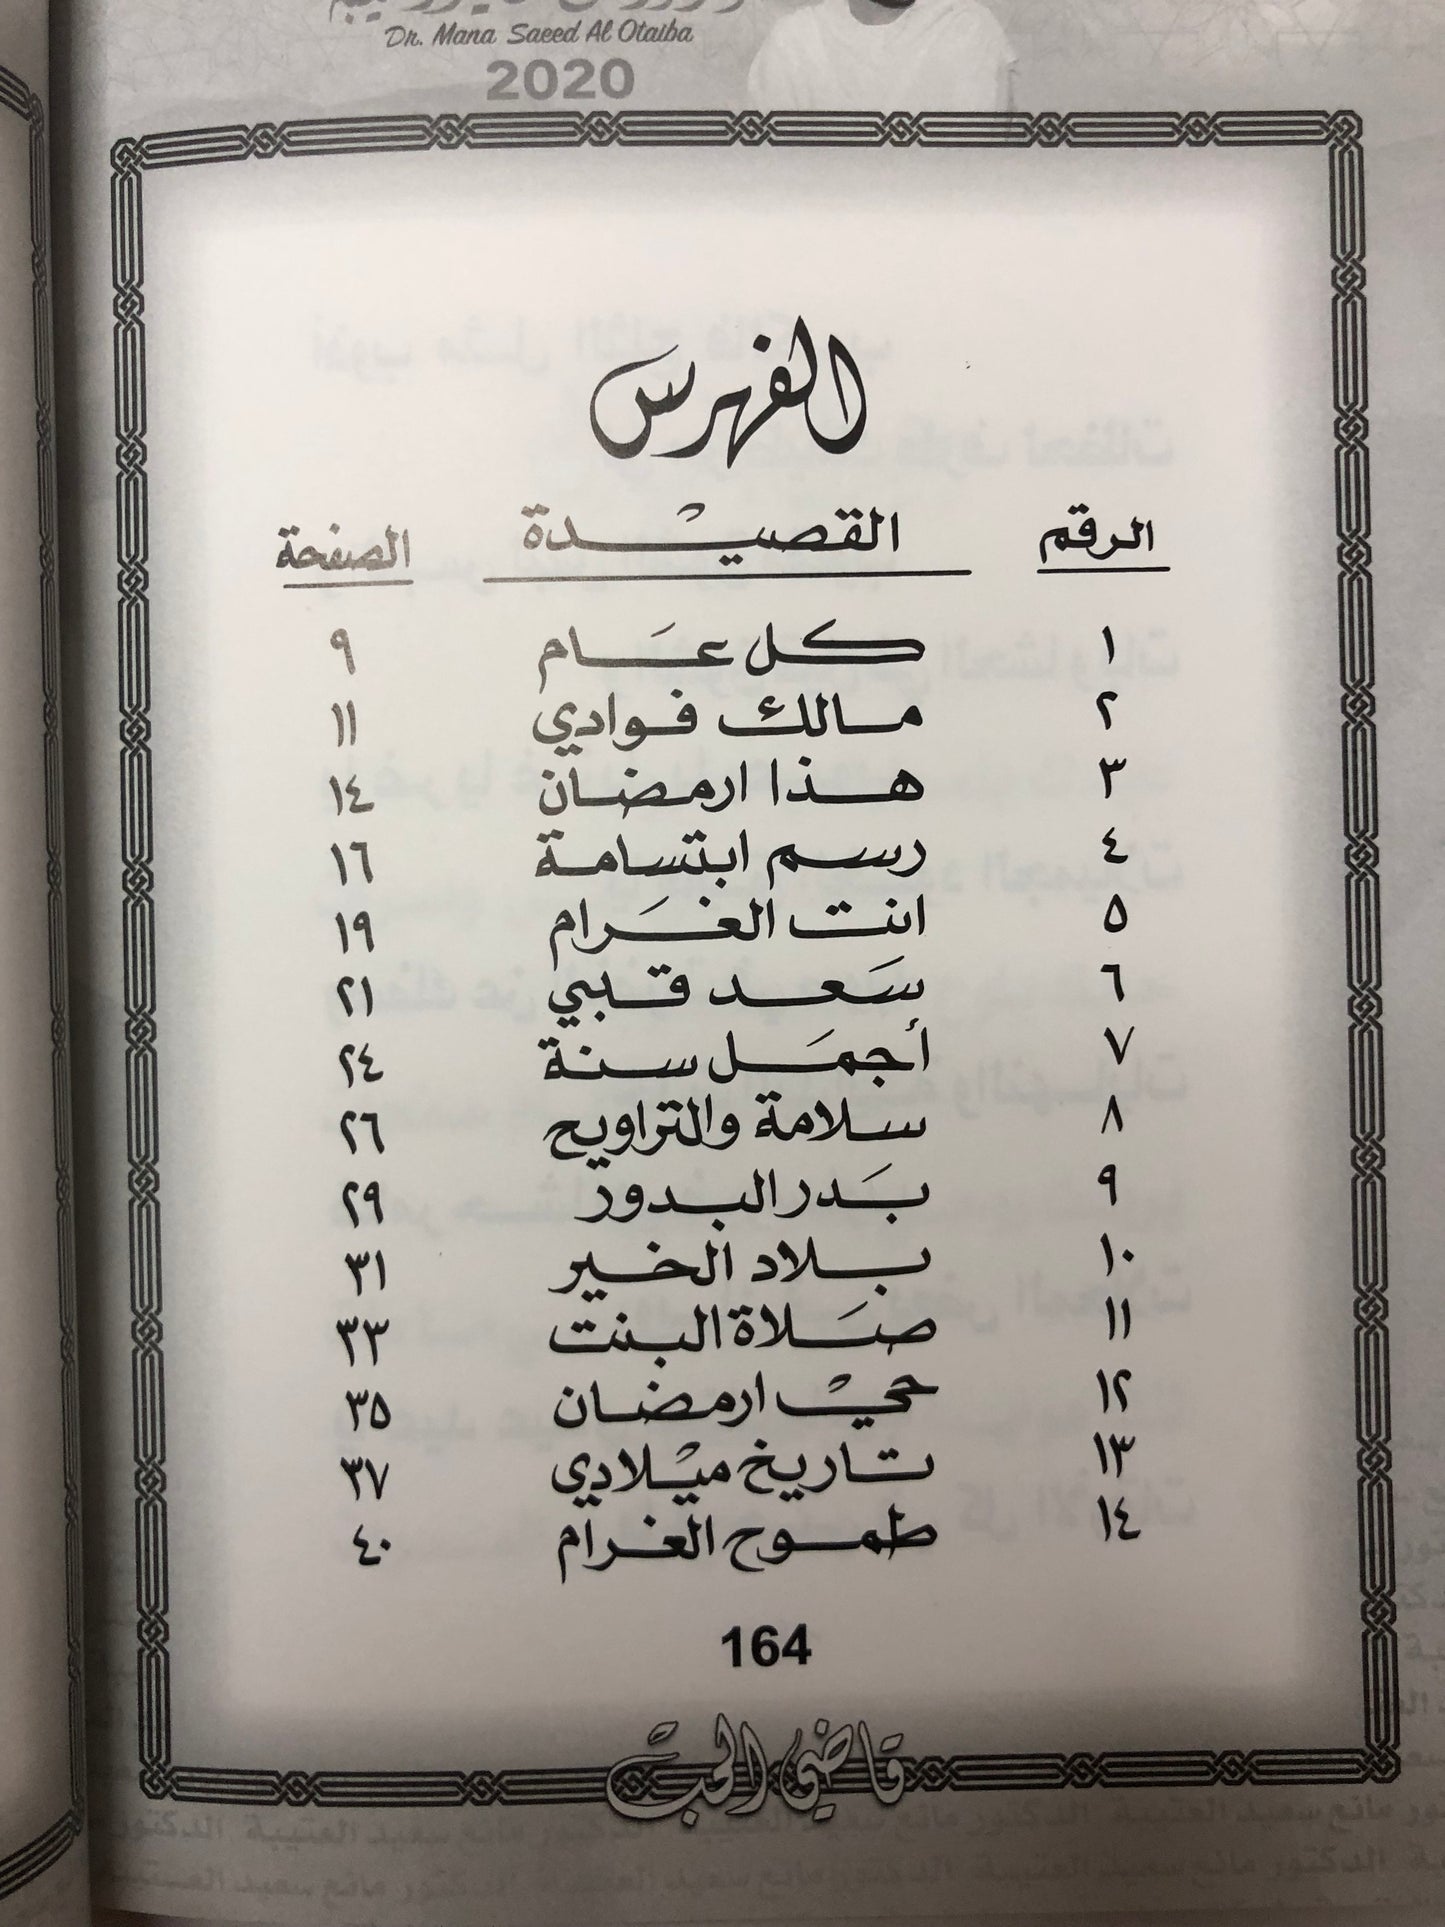 Dr. Mana Saeed Al Otaiba
2020
الفهرس
الرقم القصيدة الصفحة
١ كل عام ٩
٢ مالك فوادي ١١
٣ هذا ارمضان ١٤
٤ رسم ابتسامة ١٦
٥ انت الغرام ١٩
٦ سعد قلبي ٢١
٧ أجمل سنة ٢٤
٨ سلامة والتراويح ٢٦
٩ بدر البدور ٢٩
١٠ بلاد الخير ٣١
١١ صلاة البنت ٣٣
١٢ حي ارمضان ٣٥
١٣ تاريخ ميلادي ٣٧
١٤ طموح الغرام ٤٠
164
قاضي الحب